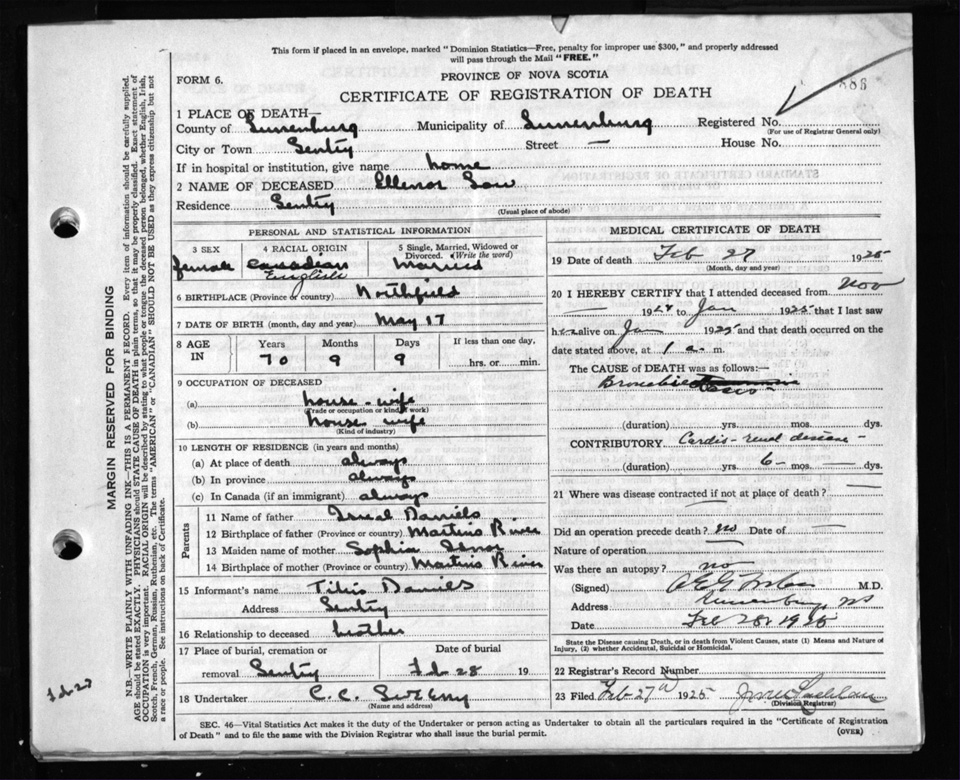 This form if placed in an envelope, marked "Dominion Statistics—Free, penalty for improper use $300," and properly addressed
will pass through the Mail "FREE."
FORM 6.
PROVINCE OF NOVA SCOTIA
CERTIFICATE OF REGISTRATION OF DEATH
1 PLACE OF DEATH—
County of Lunenburg Municipality of Lunenburg Registered No.
(For use of Registrar General only)
City or Town Sentry Street — House No.
If in hospital or institution, give name home
2 NAME OF DECEASED Ellenor
Residence Sentry
(Usual place of abode)
PERSONAL AND STATISTICAL INFORMATION
3 SEX 4 RACIAL ORIGIN 5 Single, Married, Widowed or Divorced. (Write the word)
female Canadian Married
English
6 BIRTHPLACE (Province or country) Northfield
7 DATE OF BIRTH (month, day and year) May 17
8 AGE IN Years Months Days If less than one day,
70 9 9 hrs. or min.
9 OCCUPATION OF DECEASED
(a) house-wife
(Trade or occupation or kind of work)
(b) house wife
(Kind of industry)
10 LENGTH OF RESIDENCE (in years and months)
(a) At place of death always
(b) In province always
(c) In Canada (if an immigrant) always
Parents
11 Name of father Isreal Daniels
12 Birthplace of father (Province or country) Martins River
13 Maiden name of mother Sophia
14 Birthplace of mother (Province or country) Martins River
15 Informant's name Daniels
Address Sentry
16 Relationship to deceased brother
17 Place of burial, cremation or Date of burial
removal Sentry Feb-28 19
18 Undertaker C. C.
(Name and address)
MEDICAL CERTIFICATE OF DEATH
19 Date of death Feb 27 1925
(Month, day and year)
20 I HEREBY CERTIFY that I attended deceased from Nov
— 1924 to Jan 1925 that I last saw
her alive on Jan 1925 and that death occurred on the
date stated above, at 1 a. m.
The CAUSE of DEATH was as follows:—
(duration) yrs. mos. dys.
CONTRIBUTORY Cardio-renal disease-
(duration) yrs. 6- mos. — dys.
21 Where was disease contracted if not at place of death? —
Did an operation precede death? no Date of —
Nature of operation —
Was there an autopsy? no
(Signed) M.D.
Address Lunenburg, NS
Date Feb 28, 1925
State the Disease causing Death, or in death from Violent Causes, state (1) Means and Nature of
Injury, (2) whether Accidental, Suicidal or Homicidal.
22 Registrar's Record Number
23 Filed Feb-27 1925
(Division Registrar)
SEC. 46—Vital Statistics Act makes it the duty of the Undertaker or person acting as Undertaker to obtain all the particulars required in the "Certificate of Registration
of Death" and to file the same with the Division Registrar who shall issue the burial permit.
(OVER)
MARGIN RESERVED FOR BINDING
N.B.—WRITE PLAINLY WITH UNFADING INK—THIS IS A PERMANENT RECORD. Every item of information should be carefully supplied.
AGE should be stated EXACTLY. PHYSICIANS should STATE CAUSE OF DEATH in plain terms, so that it may be properly classified. Exact statement of
OCCUPATION is very important. RACIAL ORIGIN will be described by stating to what people or tongue the deceased person belonged, whether English, Irish,
Scotch, French, German, Russian, Ruthenian, etc. The terms "AMERICAN" or "CANADIAN" SHOULD NOT BE USED as they express citizenship but not
a race or people. See instructions on back of Certificate.
Feb-27